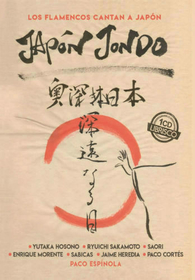 LOS FLAMENCOS CANTAN A JAPÓN
JAPÓN JONDO
日本
深遠なる日
1CD
LIBRISCO
• YUTAKA HOSONO • RYUICHI SAKAMOTO • SAORI
• ENRIQUE MORENTE • SABICAS • JAIME HEREDIA • PACO CORTÉS
PACO ESPÍNOLA